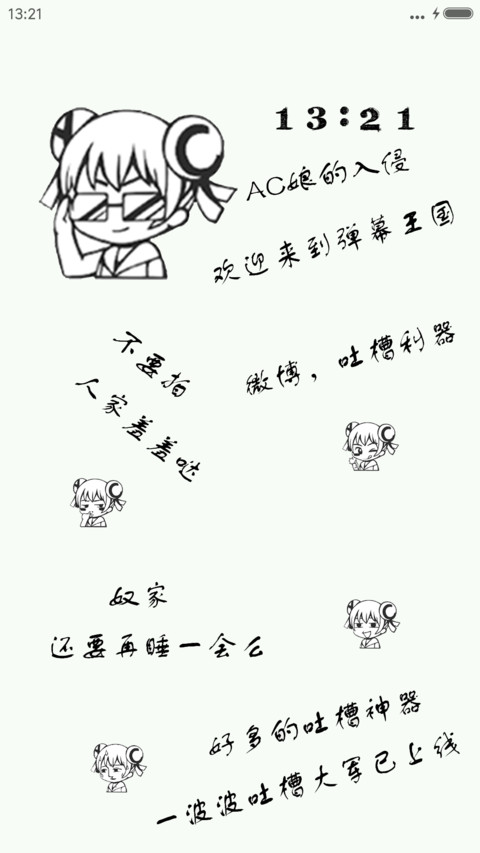 13:21
13:21
AC娘的入侵
欢迎来到弹幕王国
微博，吐槽利器
不要拍
人家羞羞哒
奴家
还要再睡一会么
好多的吐槽神器
一波波吐槽大军已上线